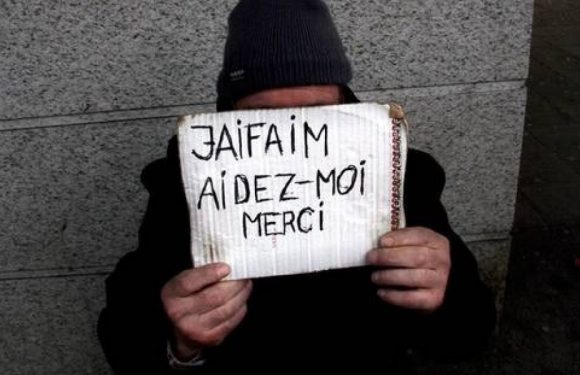 JAiFAiM
AiDEZ-MOi
MERCi